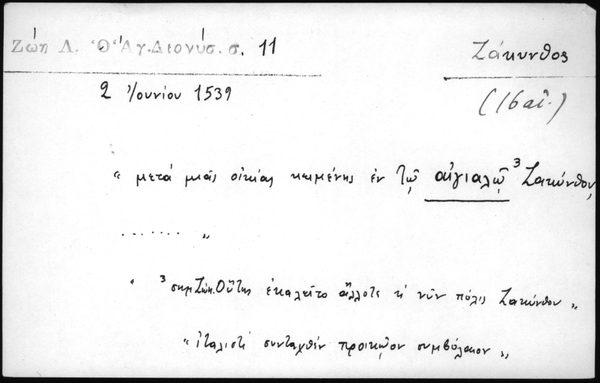 Ζώη Λ. Ὁ Ἅγ. Διονύσ. σ. 11
Ζάκυνθος
2 Ἰουνίου 1539
(16 αἰ.)
" μετά μιᾶς οἰκίας κειμένης ἐν τῷ αἰγιαλῷ ³ Ζακύνθου,
....... "
" ³ σημ. Ζώη. Οὕτως ἐκαλεῖτο ἄλλοτε ἡ νῦν πόλις Ζακύνθου "
" ἰταλιστί συνταχθέν προικῷον συμβόλαιον "